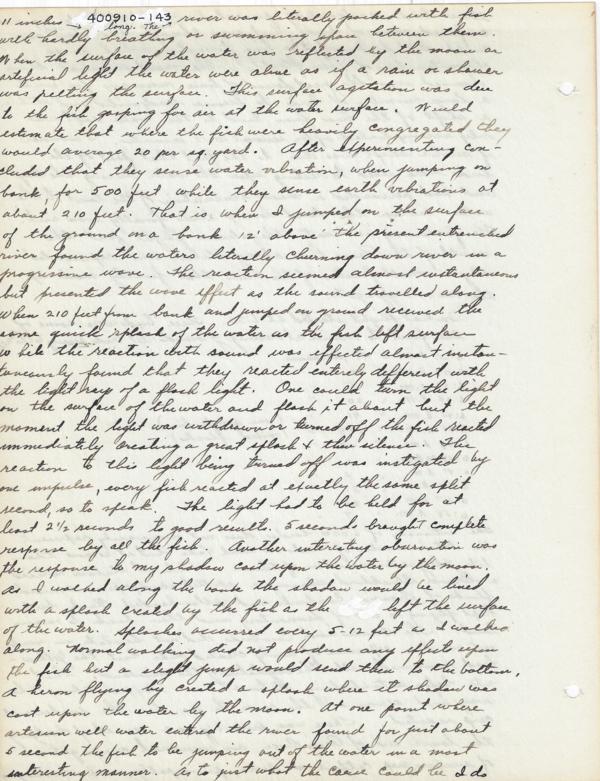 11 inches 400910-143 river was literally packed with fish
long. The
with hardly beating or swimming space between them.
When the surface of the water was reflected by the moon or
artificial light the water were alive as if a rain or shower
was pelting the surface. This surface agitation was due
to the fish gasping for air at the water surface. Would
estimate that where the fish were heavily congregated they
would average 20 per sq. yard. After experimenting con-
cluded that they sense water vibration, when jumping on
bank, for 500 feet while they sense earth vibrations at
about 210 feet. That is when I jumped on the surface
of the ground on a bank 12' above the present entrenched
river found the waters literally churning down river in a
progressive wave. The reaction seemed almost instantaneous
but presented the wave effect as the sound travelled along.
When 210 feet from bank and jumped on ground received the
same quick splash of the water as the fish left surface
While the reaction with sound was effected almost instan-
taneously found that they reacted entirely different with
the light ray of a flash light. One could turn the light
on the surface of the water and flash it about but the
moment the light was withdrawn or turned off the fish reacted
immediately creating a great splash & then silence. The
reaction to this light being turned off was instigated by
one impulse, every fish reacted at exactly the same split
second, so to speak. The light had to be held for at
least 2 1/2 seconds to good result. 5 seconds brought complete
response by all the fish. Another interesting observation was
the response to my shadow cast upon the water by the moon.
As I walked along the bank the shadow would be lined
with a splash created by the fish as the left the surface
of the water. Splashes occurred every 5-12 feet as I walked
along. Normal walking did not produce any effects upon
the fish but a slight jump would send them to the bottom.
A heron flying by created a splash where it shadow was
cast upon the water by the moon. At one point where
artesian well water entered the river found for just about
5 second the fish to be jumping out of the water in a most
interesting manner. As to just what the cause could be I do